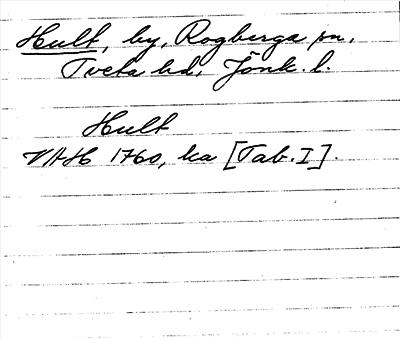 Hult, by, Rogberga sn,
Tveta hd, Jönk. l.
Hult
VAH 1760, ka [Tab. I].